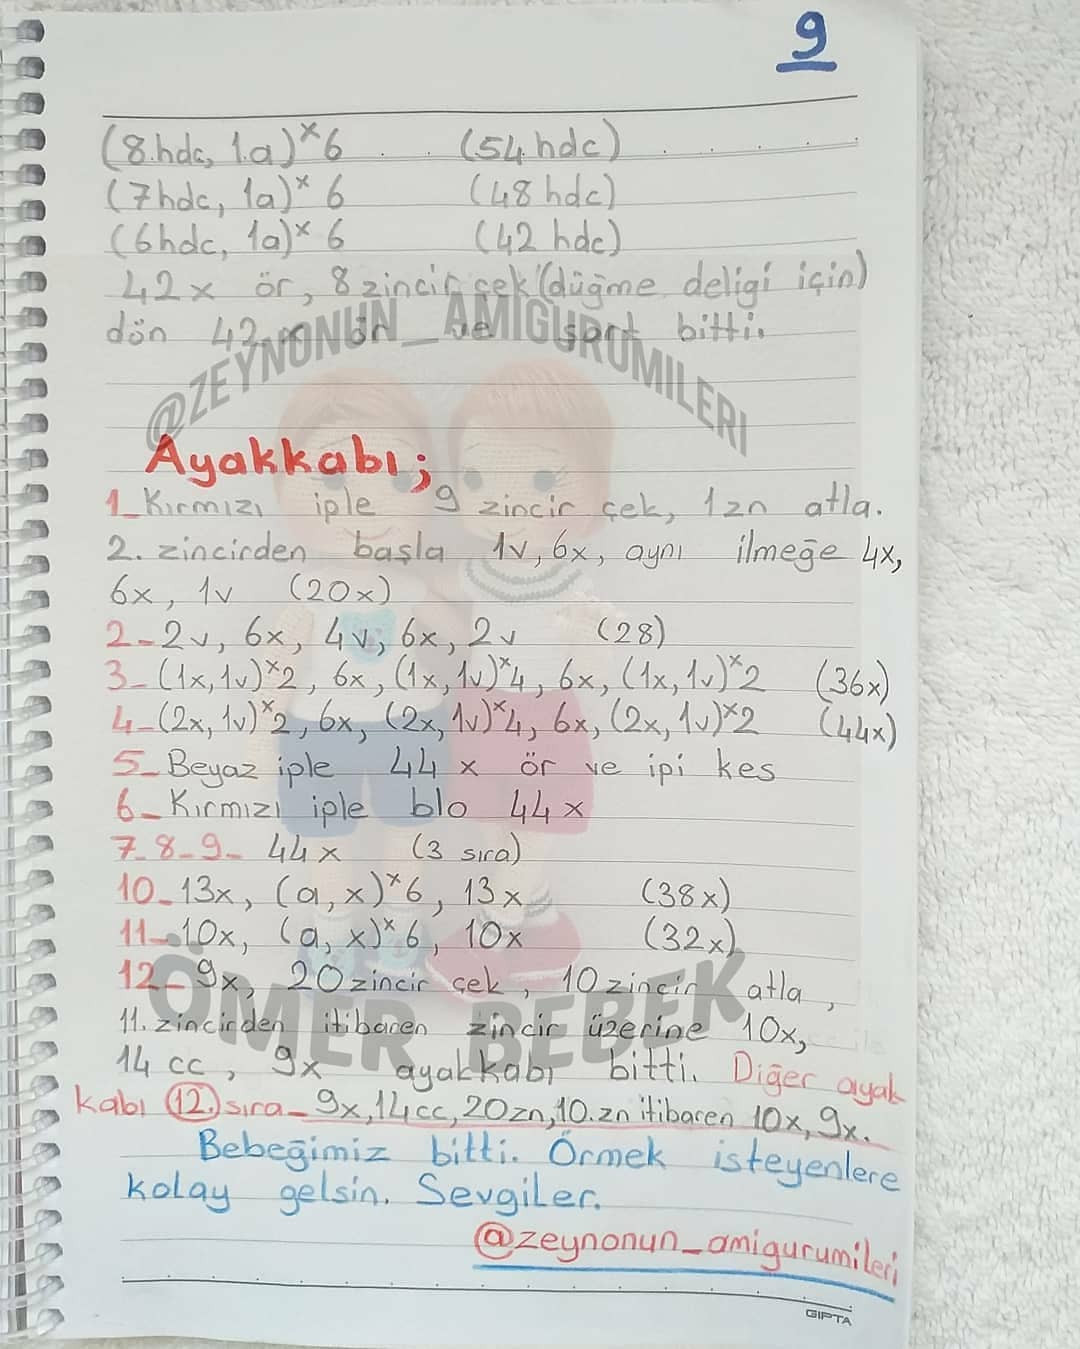 9
(8.hdc, 1.a)×6 (54 hdc)
(7hdc, 1a)× 6 (48 hdc)
(6hdc, 1a)× 6 (42 hdc)
42x ör, 8 zincir çek (düğme deligi için)
dön 42 x ör ve şort bitti.
@ZEYNONUN_AMIGURUMILERI
Ayakkabı;
1_Kırmızı iple 9 zincir çek, 1zn atla.
2. zincirden başla 1v, 6x, aynı ilmeğe 4x,
6x, 1v (20x)
2-2v, 6x, 4v, 6x, 2v (28)
3_(1x,1v)×2, 6x, (1x, 1v)×4, 6x, (1x, 1v)×2 (36x)
4-(2x, 1v)×2, 6x, (2x, 1v)×4, 6x, (2x, 1v)×2 (44x)
5_ Beyaz iple 44 x ör ve ipi kes
6_ Kırmızı iple blo 44 x
7_8_9_ 44x (3 sıra)
10_13x, (a, x)×6, 13x (38x)
11_.10x, (a, x)×6, 10x (32x)
12_ 9x, 20 zincir çek, 10 zincir atla,
ÖMER BEBEK
11. zincirden itibaren zincir üzerine 10x,
14 cc, 9x ayakkabı bitti. Diğer ayak
kabı 12. sıra_ 9x,14cc,20zn,10.zn itibaren 10x, 9x.
Bebeğimiz bitti. Örmek isteyenlere
kolay gelsin. Sevgiler.
@zeynonun_amigurumileri
GIPTA